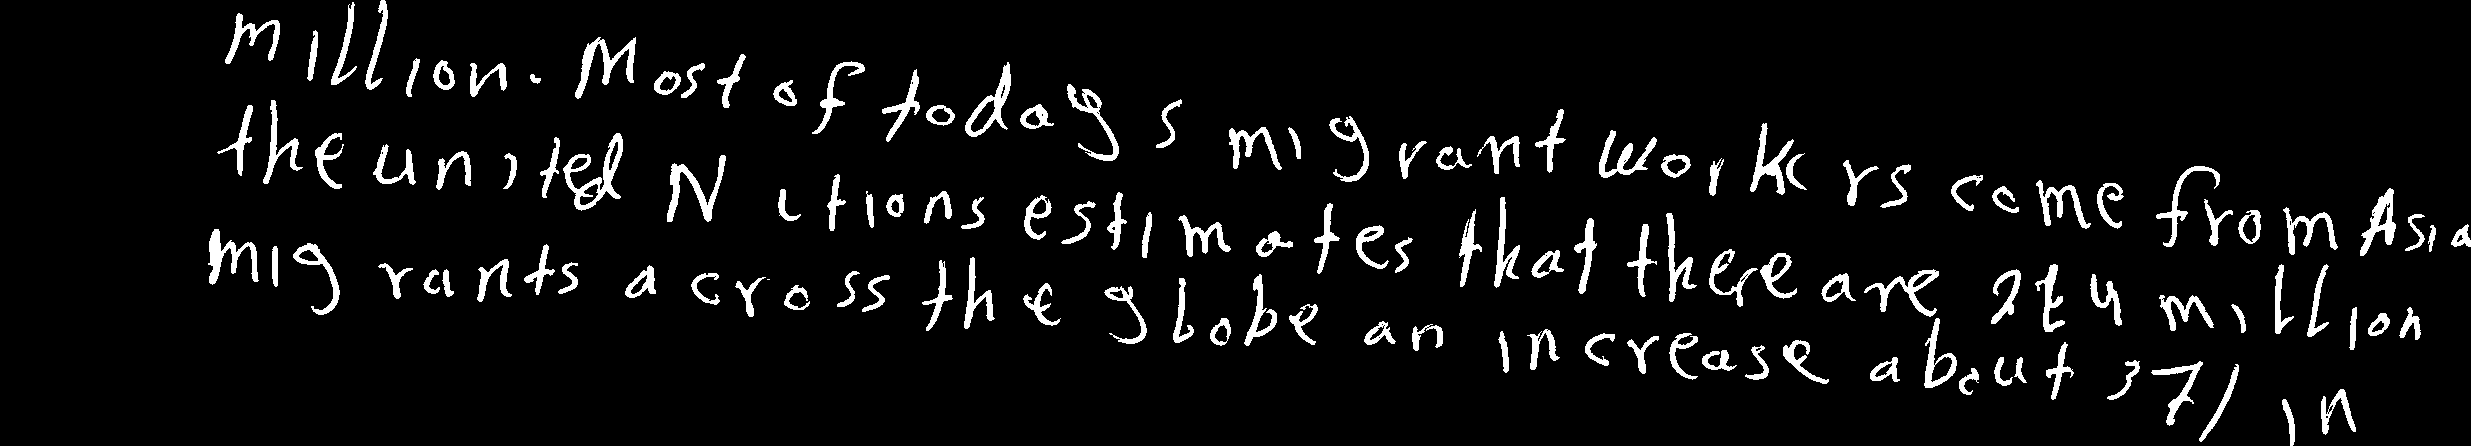 million. Most of today s migrant workers come from Asia
the united Nations estimates that there are 214 million
migrants across the globe an increase about 37% in